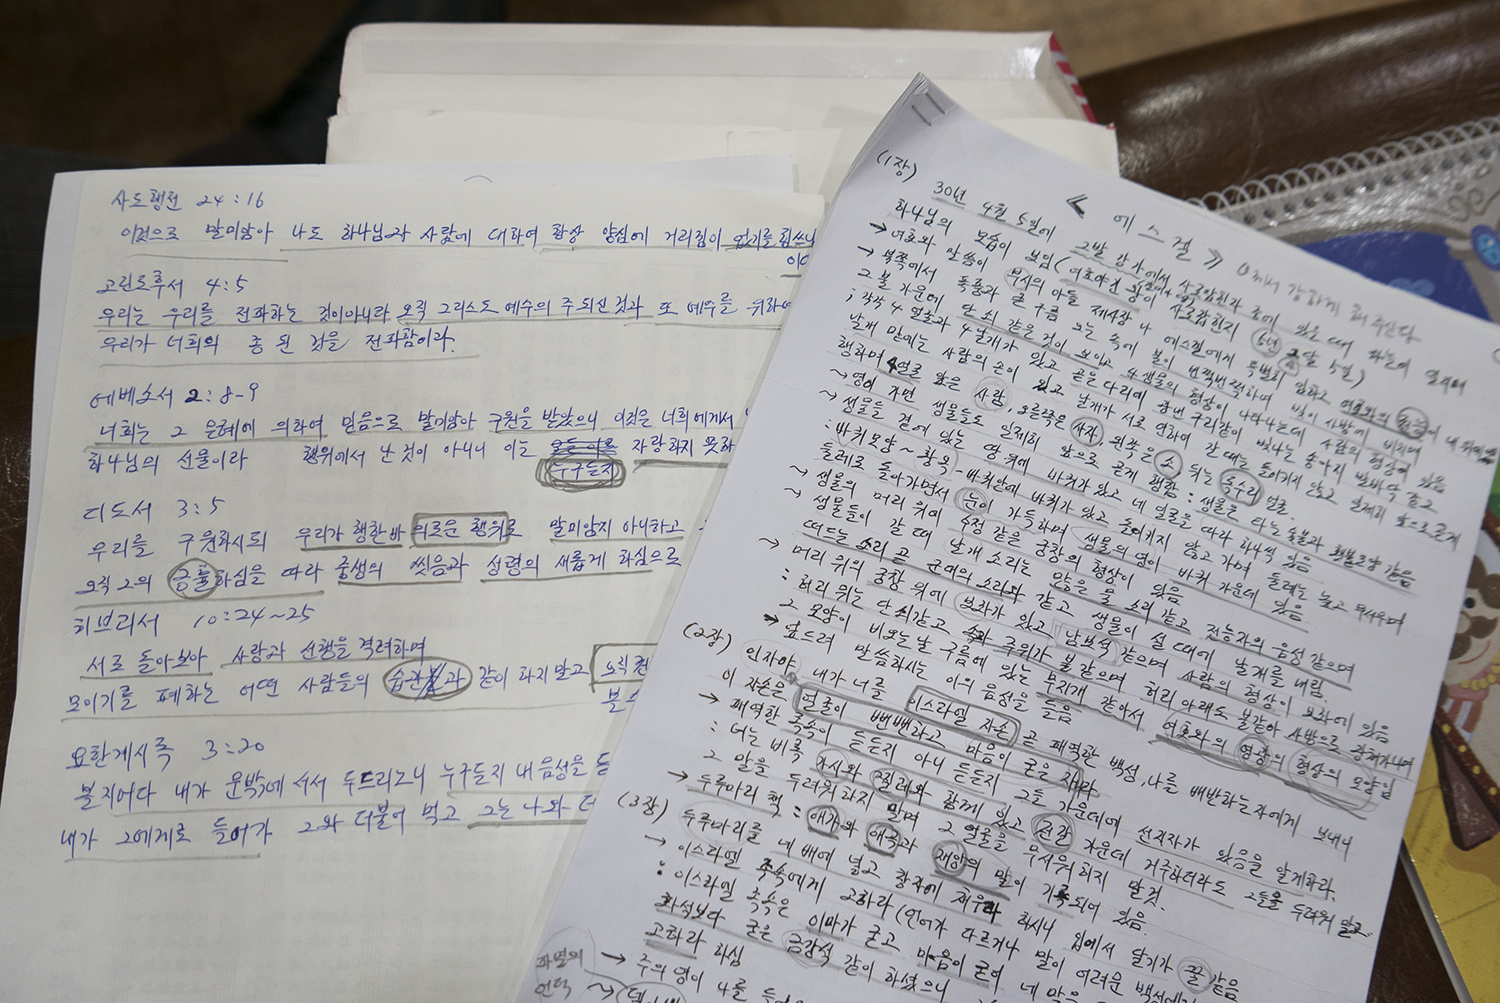 사도행전 24:16
이것으로 말미암아 나도 하나님과 사람에 대하여 항상 양심에 거리낌이 없기를 힘쓰나
고린도후서 4:5
우리는 우리를 전파하는 것이아니라 오직 그리스도 예수의 주 되신 것과 또 예수를 위하여
우리가 너희의 종 된 것을 전파함이라.
에베소서 2:8-9
너희는 그 은혜에 의하여 믿음으로 말미암아 구원을 받았으니 이것은 너희에게서
하나님의 선물이라 행위에서 난 것이 아니니 이는 자랑하지 못하
누구든지
디도서 3:5
우리를 구원하시되 우리가 행한바 의로운 행위로 말미암지 아니하고
오직 그의 긍휼하심을 따라 중생의 씻음과 성령의 새롭게 하심으로
히브리서 10:24~25
서로 돌아보아 사랑과 선행을 격려하며
모이기를 폐하는 어떤 사람들의 습관과 같이 하지말고 오직 권
요한계시록 3:20
볼지어다 내가 문밖에 서서 두드리노니 누구든지 내 음성을 듣
내가 그에게로 들어가 그와 더불어 먹고 그는 나와 더
《 에스겔 》 하나님께서 강하게 해 주신다
(1장) 30년 4월 5일에 그발 강가에서 사로잡힌자 중에 있을 때 하늘이 열리며
하나님의 모습이 보임
→ 여호와 말씀이 부시의 아들 제사장 나 에스겔에게 특별히 임하고 여호와의 권능이 내 위에
→ 북쪽에서 폭풍과 큰 구름 오는 속에 불이 번쩍번쩍하며 빛이 사방에 비치며
그 불 가운데 단 쇠 같은 것이 보이고 4 생물의 형상이 나타나는데 사람의 형상이 있음
; 각각 4 얼굴과 4 날개가 있고 곧은 다리에 송아지 발바닥 같고
날개 밑에는 사람의 손이 있고 날개가 서로 연하여 갈 때는 돌이키지 않고 일제히 앞으로 곧게
행하며 4얼굴 앞은 사람, 오른쪽은 사자 왼쪽은 소 뒤는 독수리 얼굴
→ 영이 가면 생물들도 일제히 앞으로 곧게 행함 : 생물은 타는 숯불과 횃불모양 같음
→ 생물들 곁에 있는 땅 위에 바퀴가 있고 네 얼굴을 따라 하나씩 있음
: 바퀴모양 ~ 황옥 - 바퀴안에 바퀴가 있고 돌이키지 않고 가며 둘레는 높고 무서우며
둘레로 돌아가면서 눈이 가득하며 생물의 영이 바퀴 가운데 있음
→ 생물의 머리 위에 수정 같은 궁창의 형상이 있음
→ 생물들이 갈 때 날개 소리는 많은 물 소리 같고 전능자의 음성 같으며
떠드는 소리 곧 군대의 소리와 같고 생물이 설 때에 날개를 내림
→ 머리 위의 궁창 위에 보좌가 있고 남보석 같으며 사람의 형상이 보좌에 있음
: 허리 위는 단 쇠같고 속과 주위가 불 같으며 허리 아래도 불같아 사방으로 광채가나며
그 모양이 비오는날 구름에 있는 무지개 같아서 여호와의 영광의 형상의 모양임
→ 엎드려 말씀하시는 이의 음성을 들음
(2장) 인자야 내가 너를 이스라엘 자손 곧 패역한 백성, 나를 배반하는자에게 보내니
이 자손은 얼굴이 뻔뻔하고 마음이 굳은 자라
→ 패역한 족속이 듣든지 아니 듣든지 그들 가운데에 선지자가 있음을 알게하라.
: 너는 비록 가시와 찔레와 함께 있고 전갈 가운데 거주하더라도 그들을 두려워 말고
그 말을 두려워하지 말며 그 얼굴을 무서워하지 말것.
→ 두루마리 책 : 애가와 애곡과 재앙의 말이 기록되어 있음.
(3장) 두루마리를 네 배에 넣고 창자에 채우라 하시니 입에서 달기가 꿀 같음
→ 이스라엘 족속에게 고하라 (언어가 다르거나 말이 어려운 백성에게
: 이스라엘 족속은 이마가 굳고 마음이 굳어 네 말을
화석보다 굳은 금강석 같이 하셨으니
고하라 하심
→ 주의 영이 나를 들어